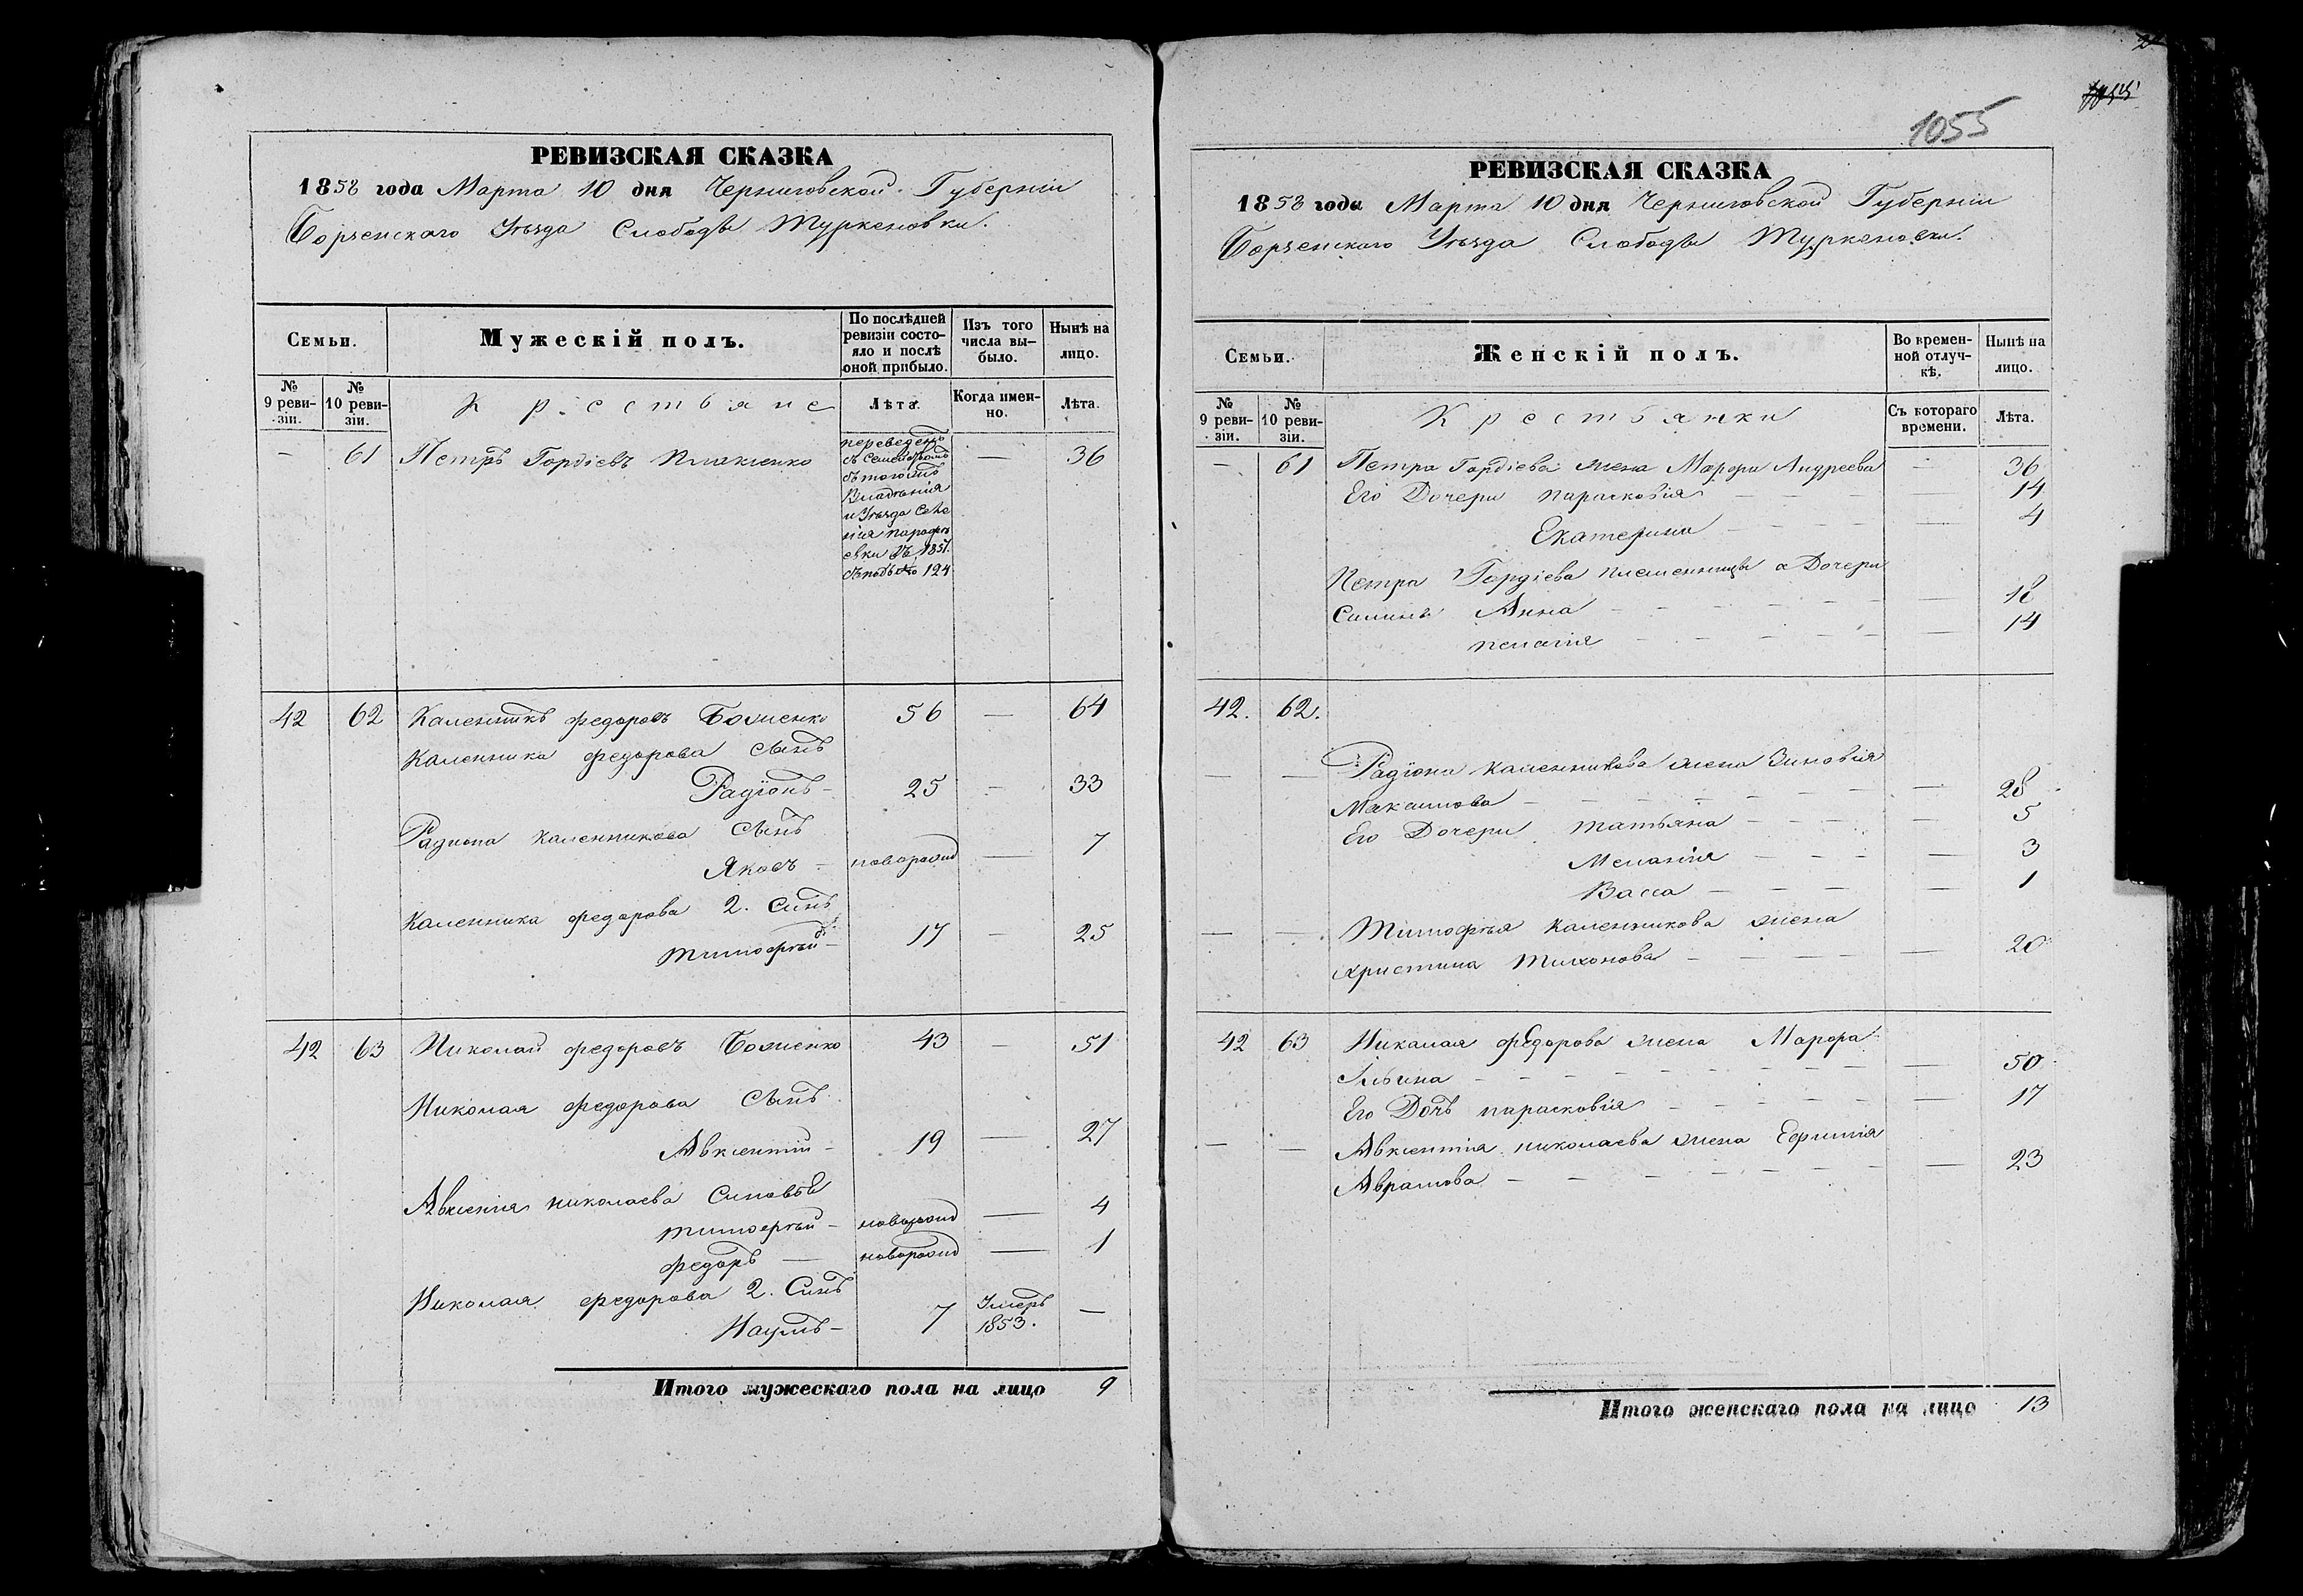 РЕВИЗСКАЯ СКАЗКА
1858 года Марта 10 дня Черниговской Губерніи
Борзенскаго Уѣзда Слободы Туркеновки.
Семьи.
Мужескій полъ.
По послѣдней ревизіи состояло и послѣ оной прибыло.
Изъ того числа выбыло.
Нынѣ на лицо.
№ 9 ревизіи.
№ 10 ревизіи.
Крестьяне
Лѣта.
Когда именно.
Лѣта.
— 61 Петръ Гордіевъ Плаксенко — 36
переведенъ
съ семействомъ
Владѣнія
и Уѣзда Селе
нія Парафѣ
евки въ 1851.
124
42 62 Каленникъ Федоровъ Божченко 56 — 64
Каленника Федорова Сынъ
Радіонъ — 25 — 33
Радиона Каленникова Сынъ
Яковъ — новорожд — 7
Каленника Федорова 2. Сынъ
Тимофѣй — 17 — 25
42 63 Николай Федоровъ Божченко 43 — 51
Николая Федорова Сынъ
Авксентій — 19 — 27
Авксентія Николаева Сыновья
Тимофѣй — новорожд — 4
Федоръ — новорожд — 1
Николая Федорова 2. Сынъ
Наумъ — 7 Умеръ 1853. —
Итого мужескаго пола на лицо 9
1055
РЕВИЗСКАЯ СКАЗКА
1858 года Марта 10 дня Черниговской Губерніи
Борзенскаго Уѣзда Слободы Туркеновки.
Семьи.
Женскій полъ.
Во временной отлучкѣ.
Нынѣ на лицо.
№ 9 ревизіи.
№ 10 ревизіи.
Крестьянки
Съ котораго времени.
Лѣта.
— 61 Петра Гордіева жена Марфа Андреева — 36
Его Дочери Парасковія — — 14
Екатерина — — 4
Петра Гордіева племенницы а Дочери
Анна — — 18
Пелагія — — 14
42. 62.
— — Радіона Каленникова жена Зиновія
Максимова — — 28
Его Дочери Татьяна — — 5
Меланія — — 3
Васса — — 1
— — Тимофѣя Каленникова жена
Христина Тихонова — — 20
42 63 Николая Федорова жена Марфа
Ильина — — 50
Его Дочь Парасковія — — 17
— — Авксентія Николаева жена Ефимія
Аврамова — — 23
Итого женскаго пола на лицо 13